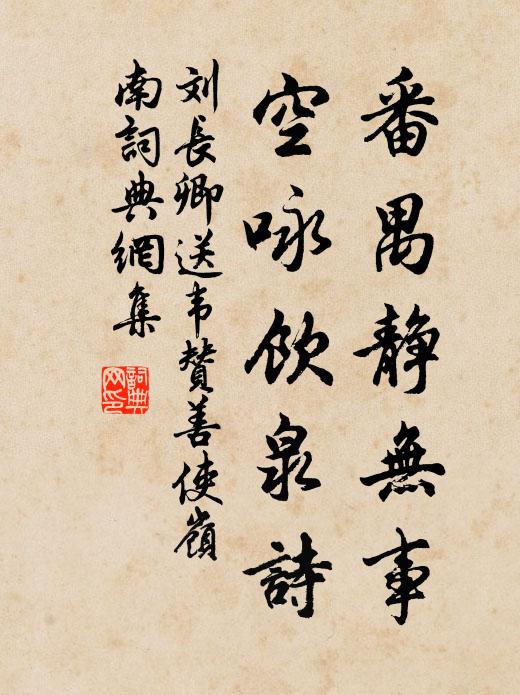 番禺静無事
空咏飲泉詩
刘長卿送韦贊善使嶺
南詞典網集
詞典网印